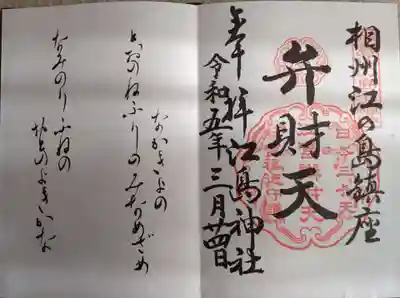 相州江の島鎮座
弁財天
奉拝 江島神社
令和五年三月廿四日
なかきよの
とおのねふりのみなめざめ
なみのりふねの
おとのよきかな